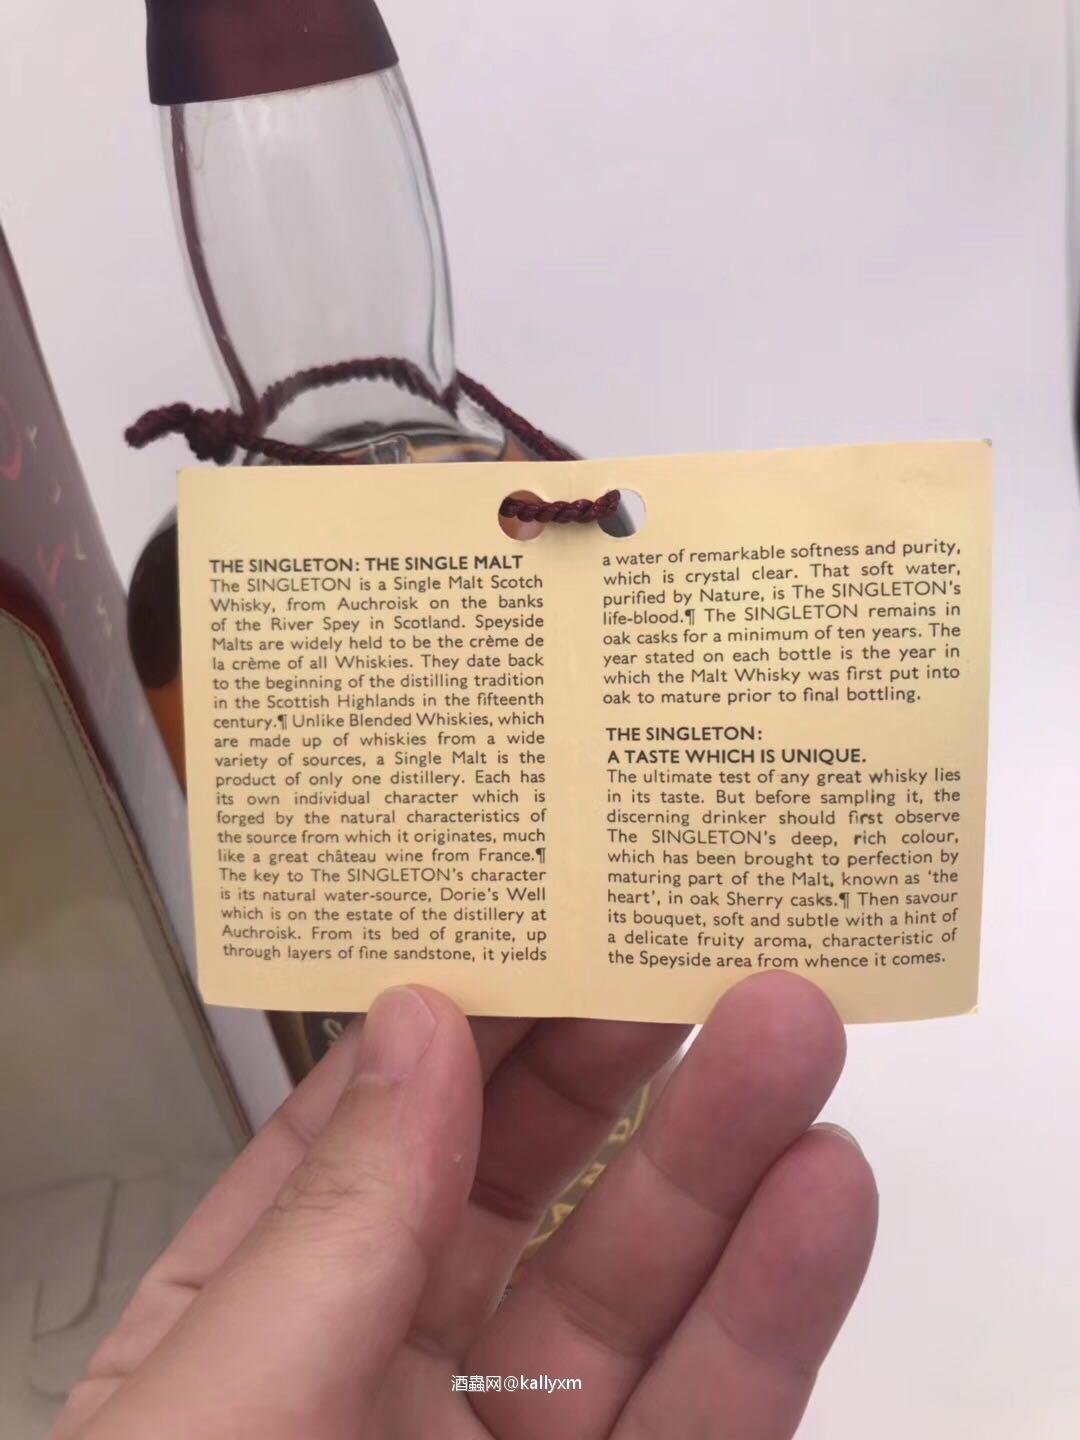 THE SINGLETON: THE SINGLE MALT
The SINGLETON is a Single Malt Scotch
Whisky, from Auchroisk on the banks
of the River Spey in Scotland. Speyside
Malts are widely held to be the crème de
la crème of all Whiskies. They date back
to the beginning of the distilling tradition
in the Scottish Highlands in the fifteenth
century.¶ Unlike Blended Whiskies, which
are made up of whiskies from a wide
variety of sources, a Single Malt is the
product of only one distillery. Each has
its own individual character which is
forged by the natural characteristics of
the source from which it originates, much
like a great château wine from France.¶
The key to The SINGLETON's character
is its natural water-source, Dorie's Well
which is on the estate of the distillery at
Auchroisk. From its bed of granite, up
through layers of fine sandstone, it yields
a water of remarkable softness and purity,
which is crystal clear. That soft water,
purified by Nature, is The SINGLETON's
life-blood.¶ The SINGLETON remains in
oak casks for a minimum of ten years. The
year stated on each bottle is the year in
which the Malt Whisky was first put into
oak to mature prior to final bottling.
THE SINGLETON:
A TASTE WHICH IS UNIQUE.
The ultimate test of any great whisky lies
in its taste. But before sampling it, the
discerning drinker should first observe
The SINGLETON's deep, rich colour,
which has been brought to perfection by
maturing part of the Malt, known as 'the
heart', in oak Sherry casks.¶ Then savour
its bouquet, soft and subtle with a hint of
a delicate fruity aroma, characteristic of
the Speyside area from whence it comes.
酒蟲网@kallyxm